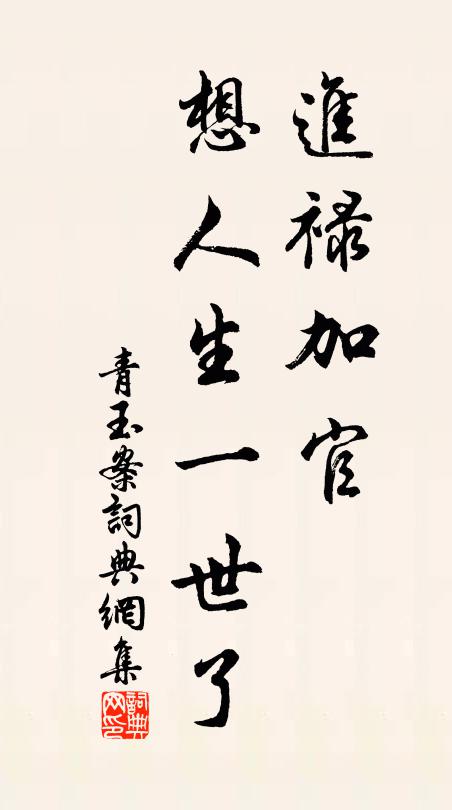 進祿加官
想人生一世了
青玉案詞典網集
詞典网印